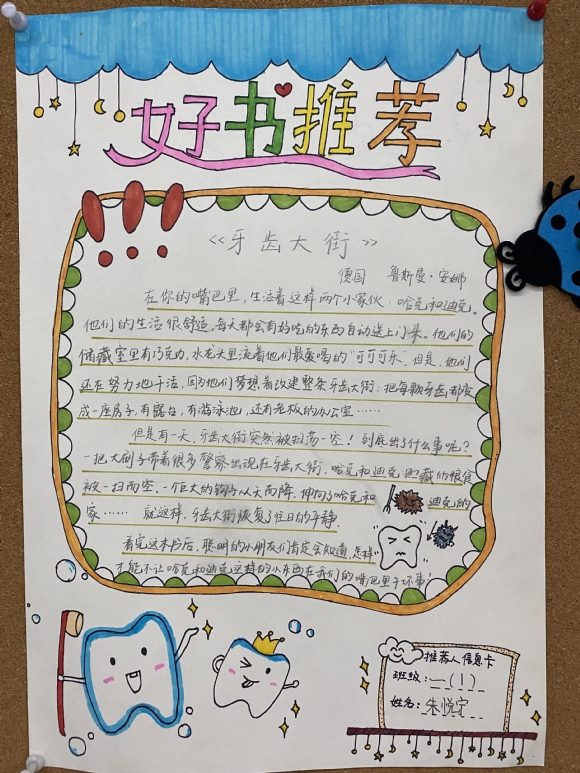 好书推荐
《牙齿大街》
德国 鲁斯曼·安娜
在你的嘴巴里，生活着这样两个小家伙：哈克和迪克。
他们的生活很舒适，每天都会有好吃的东西自动送上门来。他们的
储藏室里有巧克力，水龙头里流着他们最喜喝的“可可可乐”。但是，他们
还在努力地干活，因为他们梦想着改建整条牙齿大街：把每颗牙齿都变
成一座房子，有露台，有游泳池，还有老板的办公室……
但是有一天，牙齿大街突然被扫荡一空！到底出了什么事呢？
一把大刷子带着很多警察出现在牙齿大街，哈克和迪克贮藏的粮食
被一扫而空，一个巨大的钩子从天而降，伸向了哈克和迪克的
家……就这样，牙齿大街恢复了往日的平静。
看完这本书后，聪明的小朋友们肯定会知道，怎样
才能不让哈克和迪克这样的小东西在我们的嘴巴里干坏事！
推荐人信息卡
班级：一(1)
姓名：朱悦